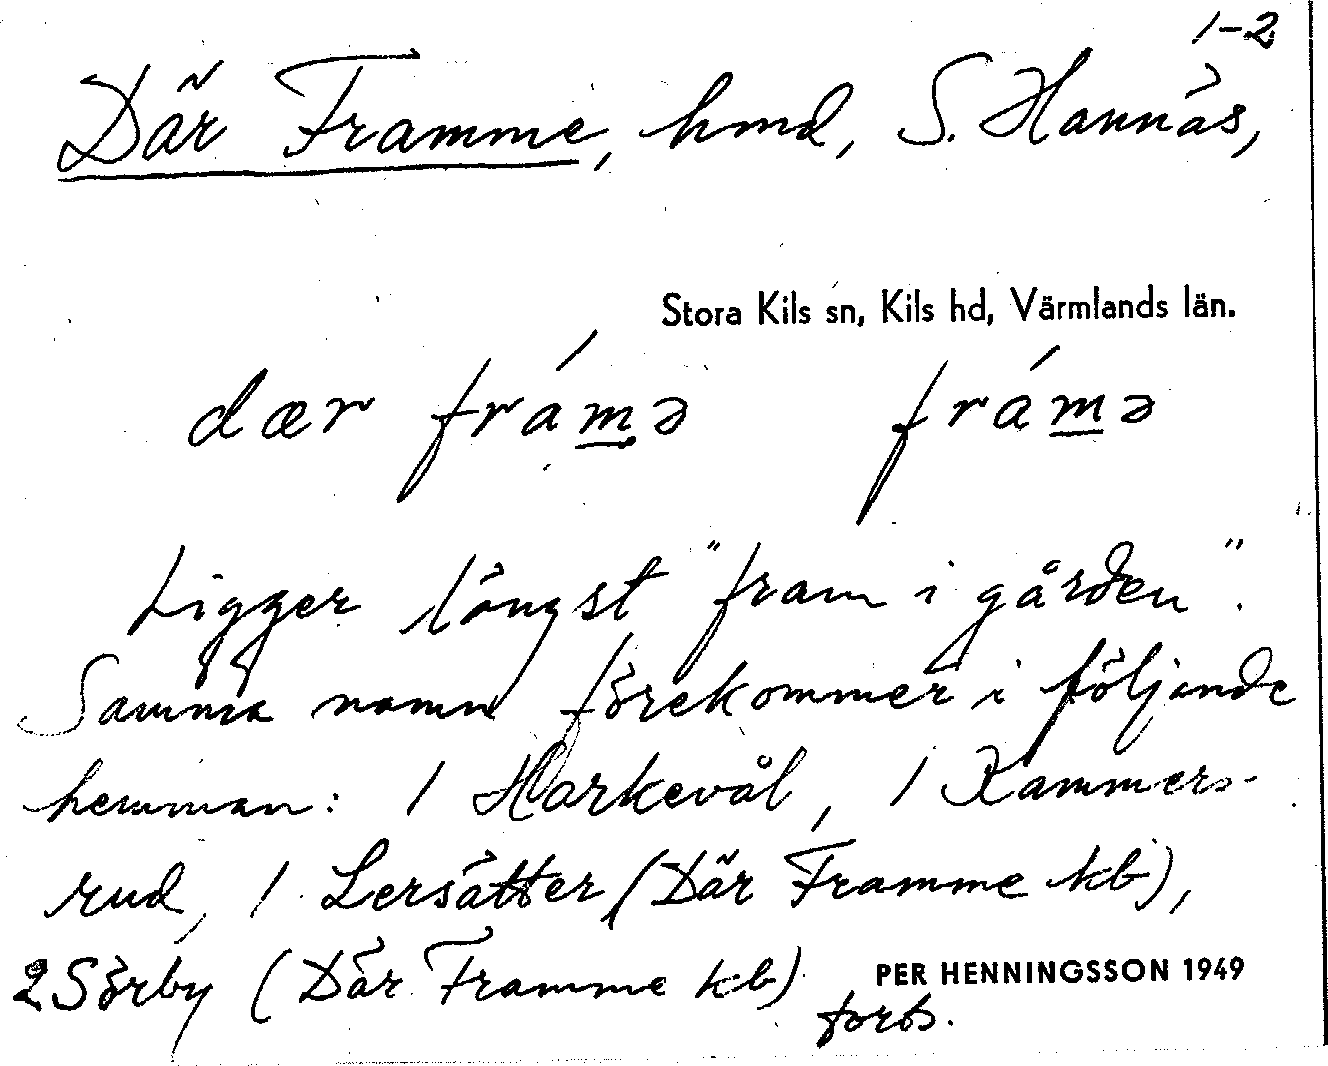 1-2
Där Framme, hmd, S. Hannäs,
Stora Kils sn, Kils hd, Värmlands län.
dær fra´mə fra´mə
Ligger längst "fram i gården".
Samma namn förekommer i följande
hemman: 1 Harkevål, 1 Kammers-
rud, 1 Lersätter (Där Framme kb),
2 Sörby (Där Framme kb)
PER HENNINGSSON 1949
forts.